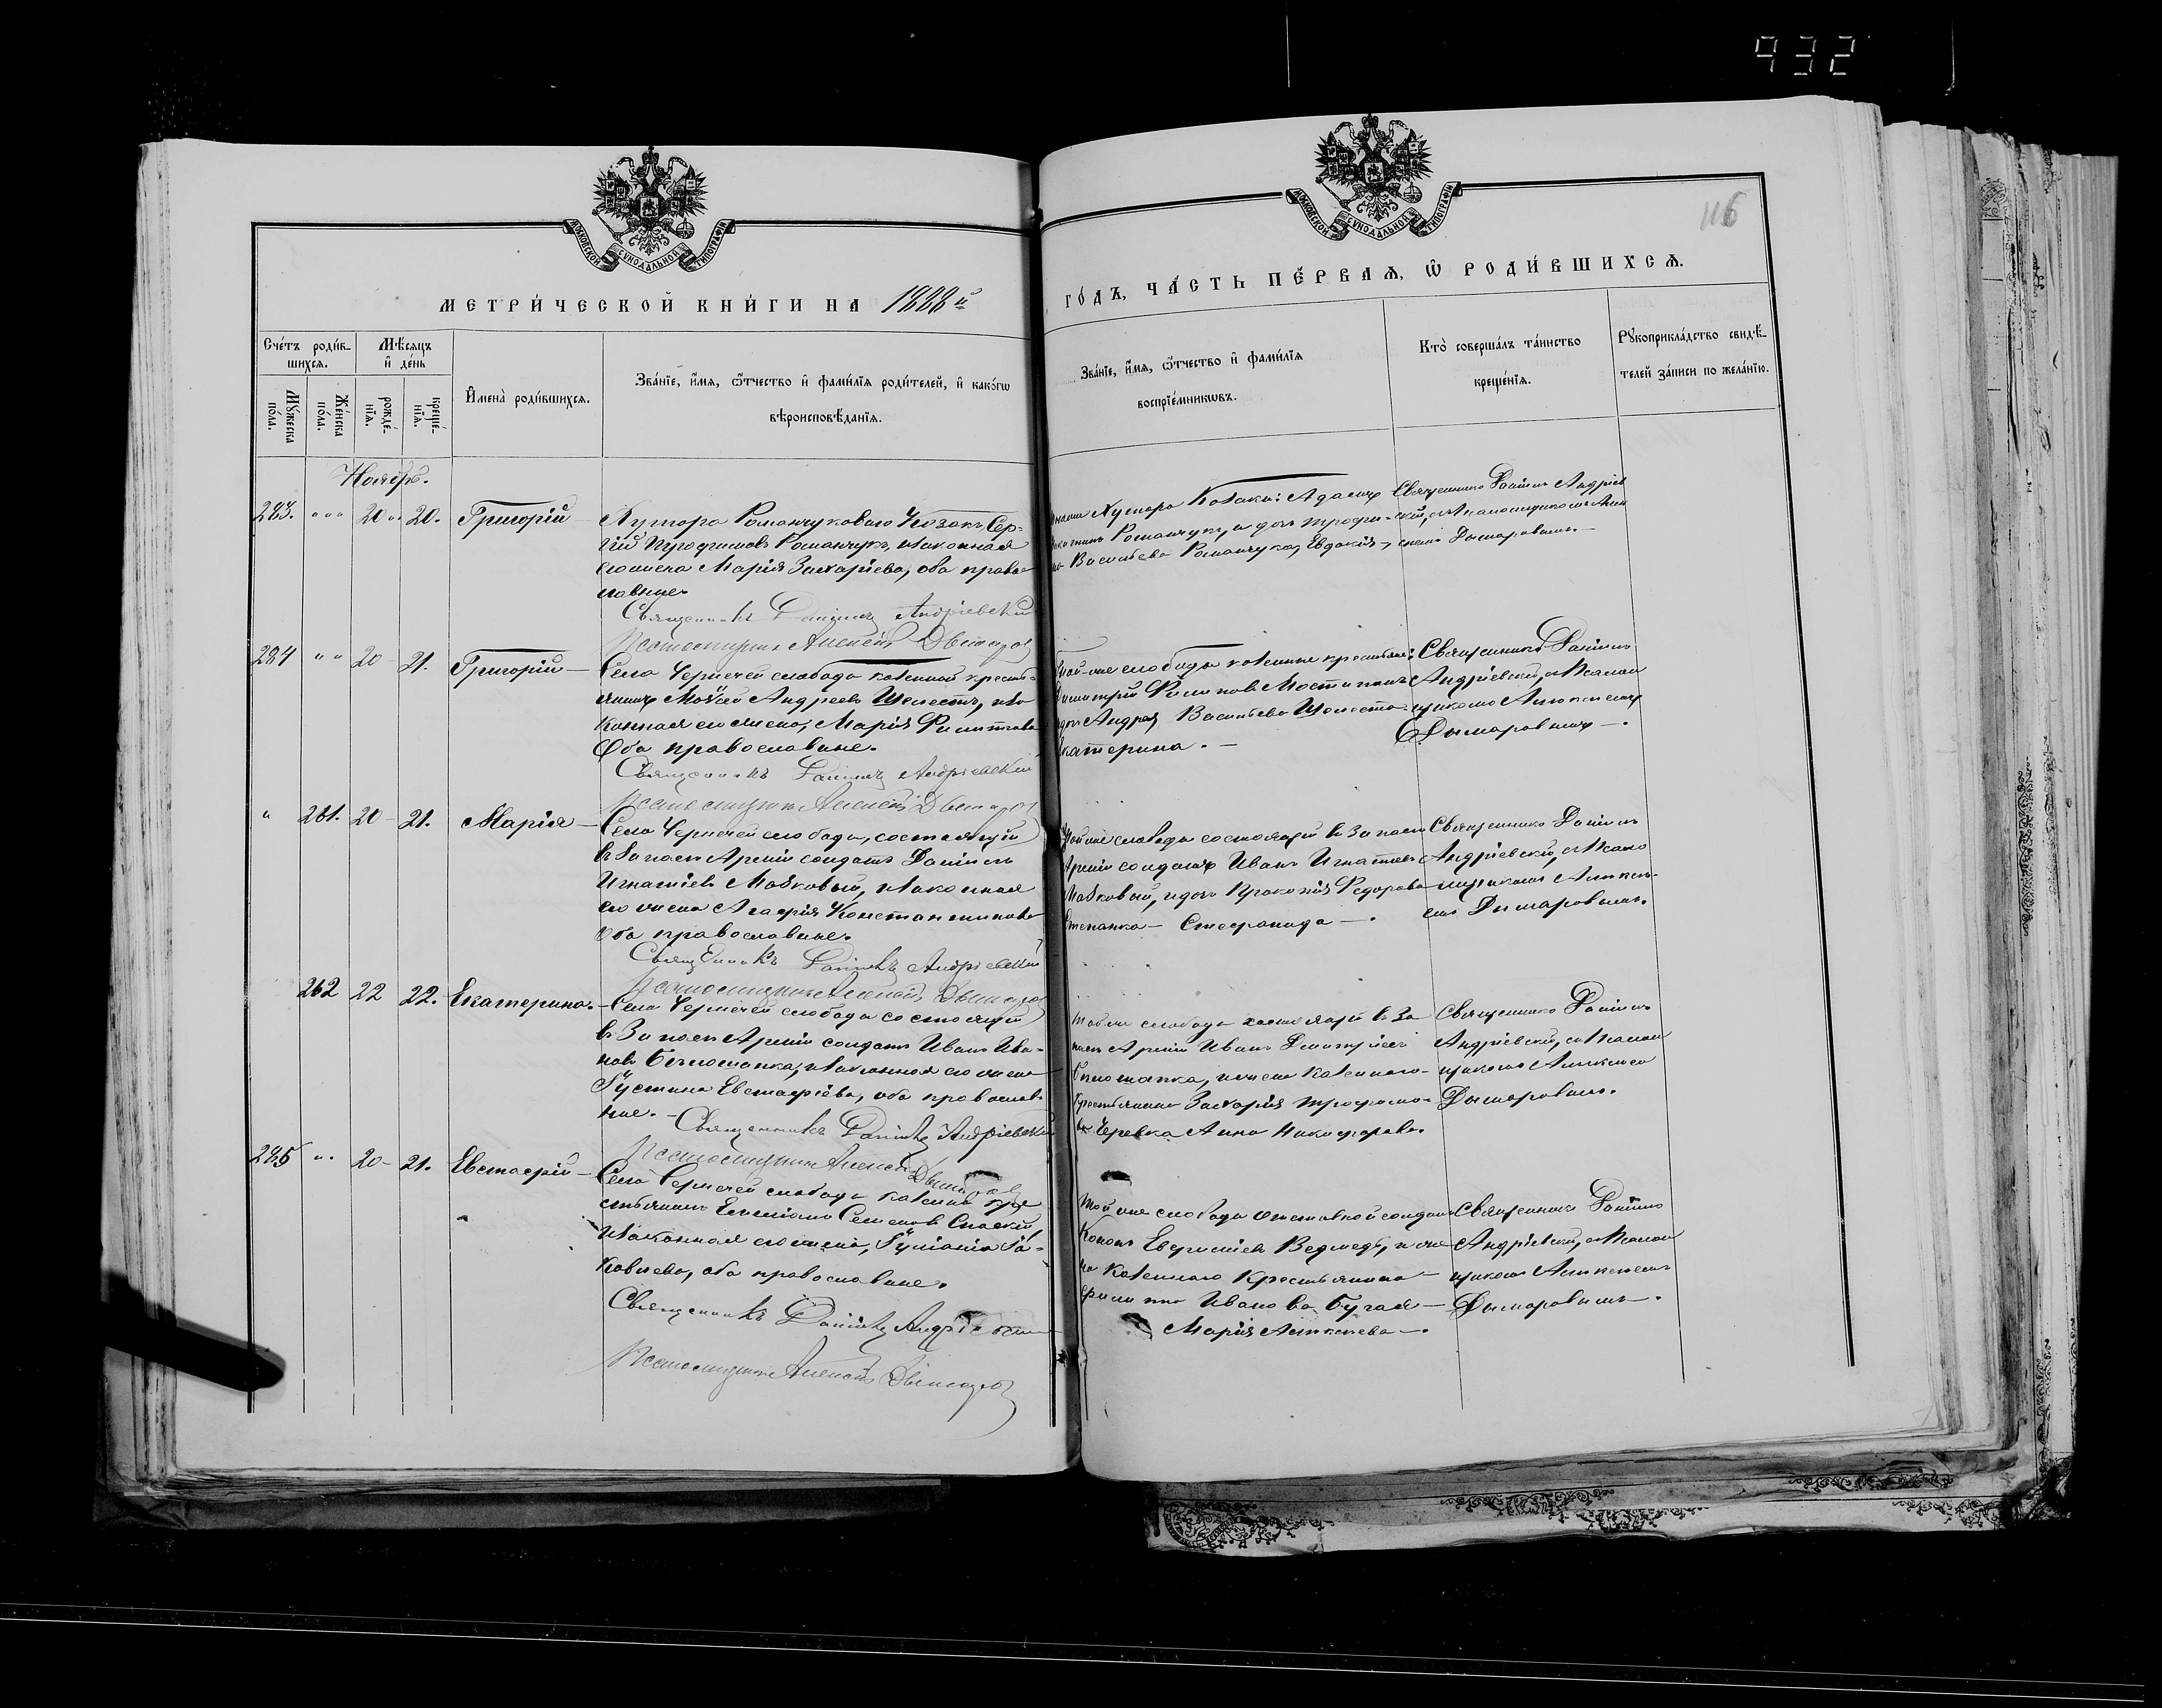 932
116
МОСКОВСКОЙ СѴНОДАЛЬНОЙ ТИПОГРАФІИ
МОСКОВСКОЙ СѴНОДАЛЬНОЙ ТИПОГРАФІИ
МЕТРИ́ЧЕСКОЙ КНИ́ГИ НА 1888й
ГО́ДЪ, ЧА́СТЬ ПЕ́РВАѦ, Ѿ РОДИ́ВШИХСѦ.
Сче́тъ роди́в-
шихсѧ.
Мѣ́сѧцъ
и҆ де́нь
Мꙋ́жеска
по́ла.
Же́нска
по́ла.
рожде́-
нїѧ.
креще́-
нїѧ.
И҆мена̀ роди́вшихсѧ.
Зва́нїе, и҆́мѧ, ѻ҆́тчество и҆ фами́лїѧ роди́телей, и҆ како́гѡ
вѣроисповѣ́данїѧ.
Зва́нїе, и҆́мѧ, ѻ҆́тчество и҆ фами́лїѧ
воспрїе́мникѡвъ.
Кто̀ соверша́лъ та́инство
креще́нїѧ.
Рꙋкоприкла́дство свидѣ́-
телей за́писи по жела́нїю.
Ноябрь.
283. " " " 20 " 20. Григорій
Хутора Романчуковаго Козакъ Сер-
гій Трофимовъ Романчукъ, и законная
его жена Марія Захаріева, оба право-
славные
Священникъ Даніилъ Андріевскій
Псаломщикъ Алексій Дымаров
Хутора Козаки: Адамъ
Романчукъ, и дочь Трофи-
ма Васильева Романчука, Евдокія
Священникъ Даніилъ Андріев
скій, съ Псаломщикомъ Алек
сіемъ Дымаровымъ.
284 " " 20 21. Григорій
Села Чернечей слободы казенной кресть-
янинъ Мойсей Андреевъ Шелестъ, и за-
конная его жена, Марія Филиппова
Оба православные.
Священникъ Даніилъ Андріевскій
Псаломщикъ Алексій Дымаров
Той-же слободы казенные крестьяне:
Димитрій Филиповъ Мостипанъ
и дочь Андрея Васильева Шелеста
Екатерина. —
Священникъ Даніилъ
Андріевскій, съ Псалом
щикомъ Алексіемъ
Дымаровымъ —.
" 261. 20 21. Марія
Села Чернечей слободы, состоящій
въ Запасѣ Арміи солдатъ Даніилъ
Игнатіевъ Мазковый, и законная
его жена Агафія Константинова
Оба православные.
Священникъ Даніилъ Андріевскій
Псаломщикъ Алексій Дымаров
Той же слободы состоящій въ Запасѣ
Арміи солдатъ Иванъ Игнатіевъ
Мазковый, и дочь Прокопія Федорова
Степанка — Стефанида —.
Священникъ Даніилъ
Андріевскій, съ Псалом
щикомъ Алексі-
емъ Дымаровымъ.
262 22 22. Екатерина.
Села Чернечей слободы состоящій
въ Запасѣ Арміи солдатъ Иванъ Ива-
новъ Бѣлошапка, и законная его жена
Іустина Евстафіева, оба православ-
ные. —
Священникъ Даніилъ Андріевскій
Псаломщикъ Алексій Дымаров
Той же слободы состоящій въ За
пасѣ Арміи Иванъ Дмитріевъ
Бѣлошапка, и жена казеннаго
крестьянина Захарія Трофимо-
ва Черевка Анна Никифорова.
Священникъ Даніилъ
Андріевскій, съ Псалом
щикомъ Алексіемъ
Дымаровымъ.
285 " " 20 — 21. Евстафій
Села Чернечей слободы казенный кре
стьянинъ Семеновъ
и законная его жена, Іуліанія Іа-
ковлева, оба православные.
Священникъ Даніилъ Андріевскій
Псаломщикъ Алексій Дымаров
Той же слободы отставной солдатъ
Кононъ Евфиміевъ Ведмедь, и же
на казеннаго крестьянина
Филиппа Иванова Бугая —
Марія Алексѣева —.
Священникъ Даніилъ
Андріевскій, съ Псалом
щикомъ Алексіемъ
Дымаровымъ —.